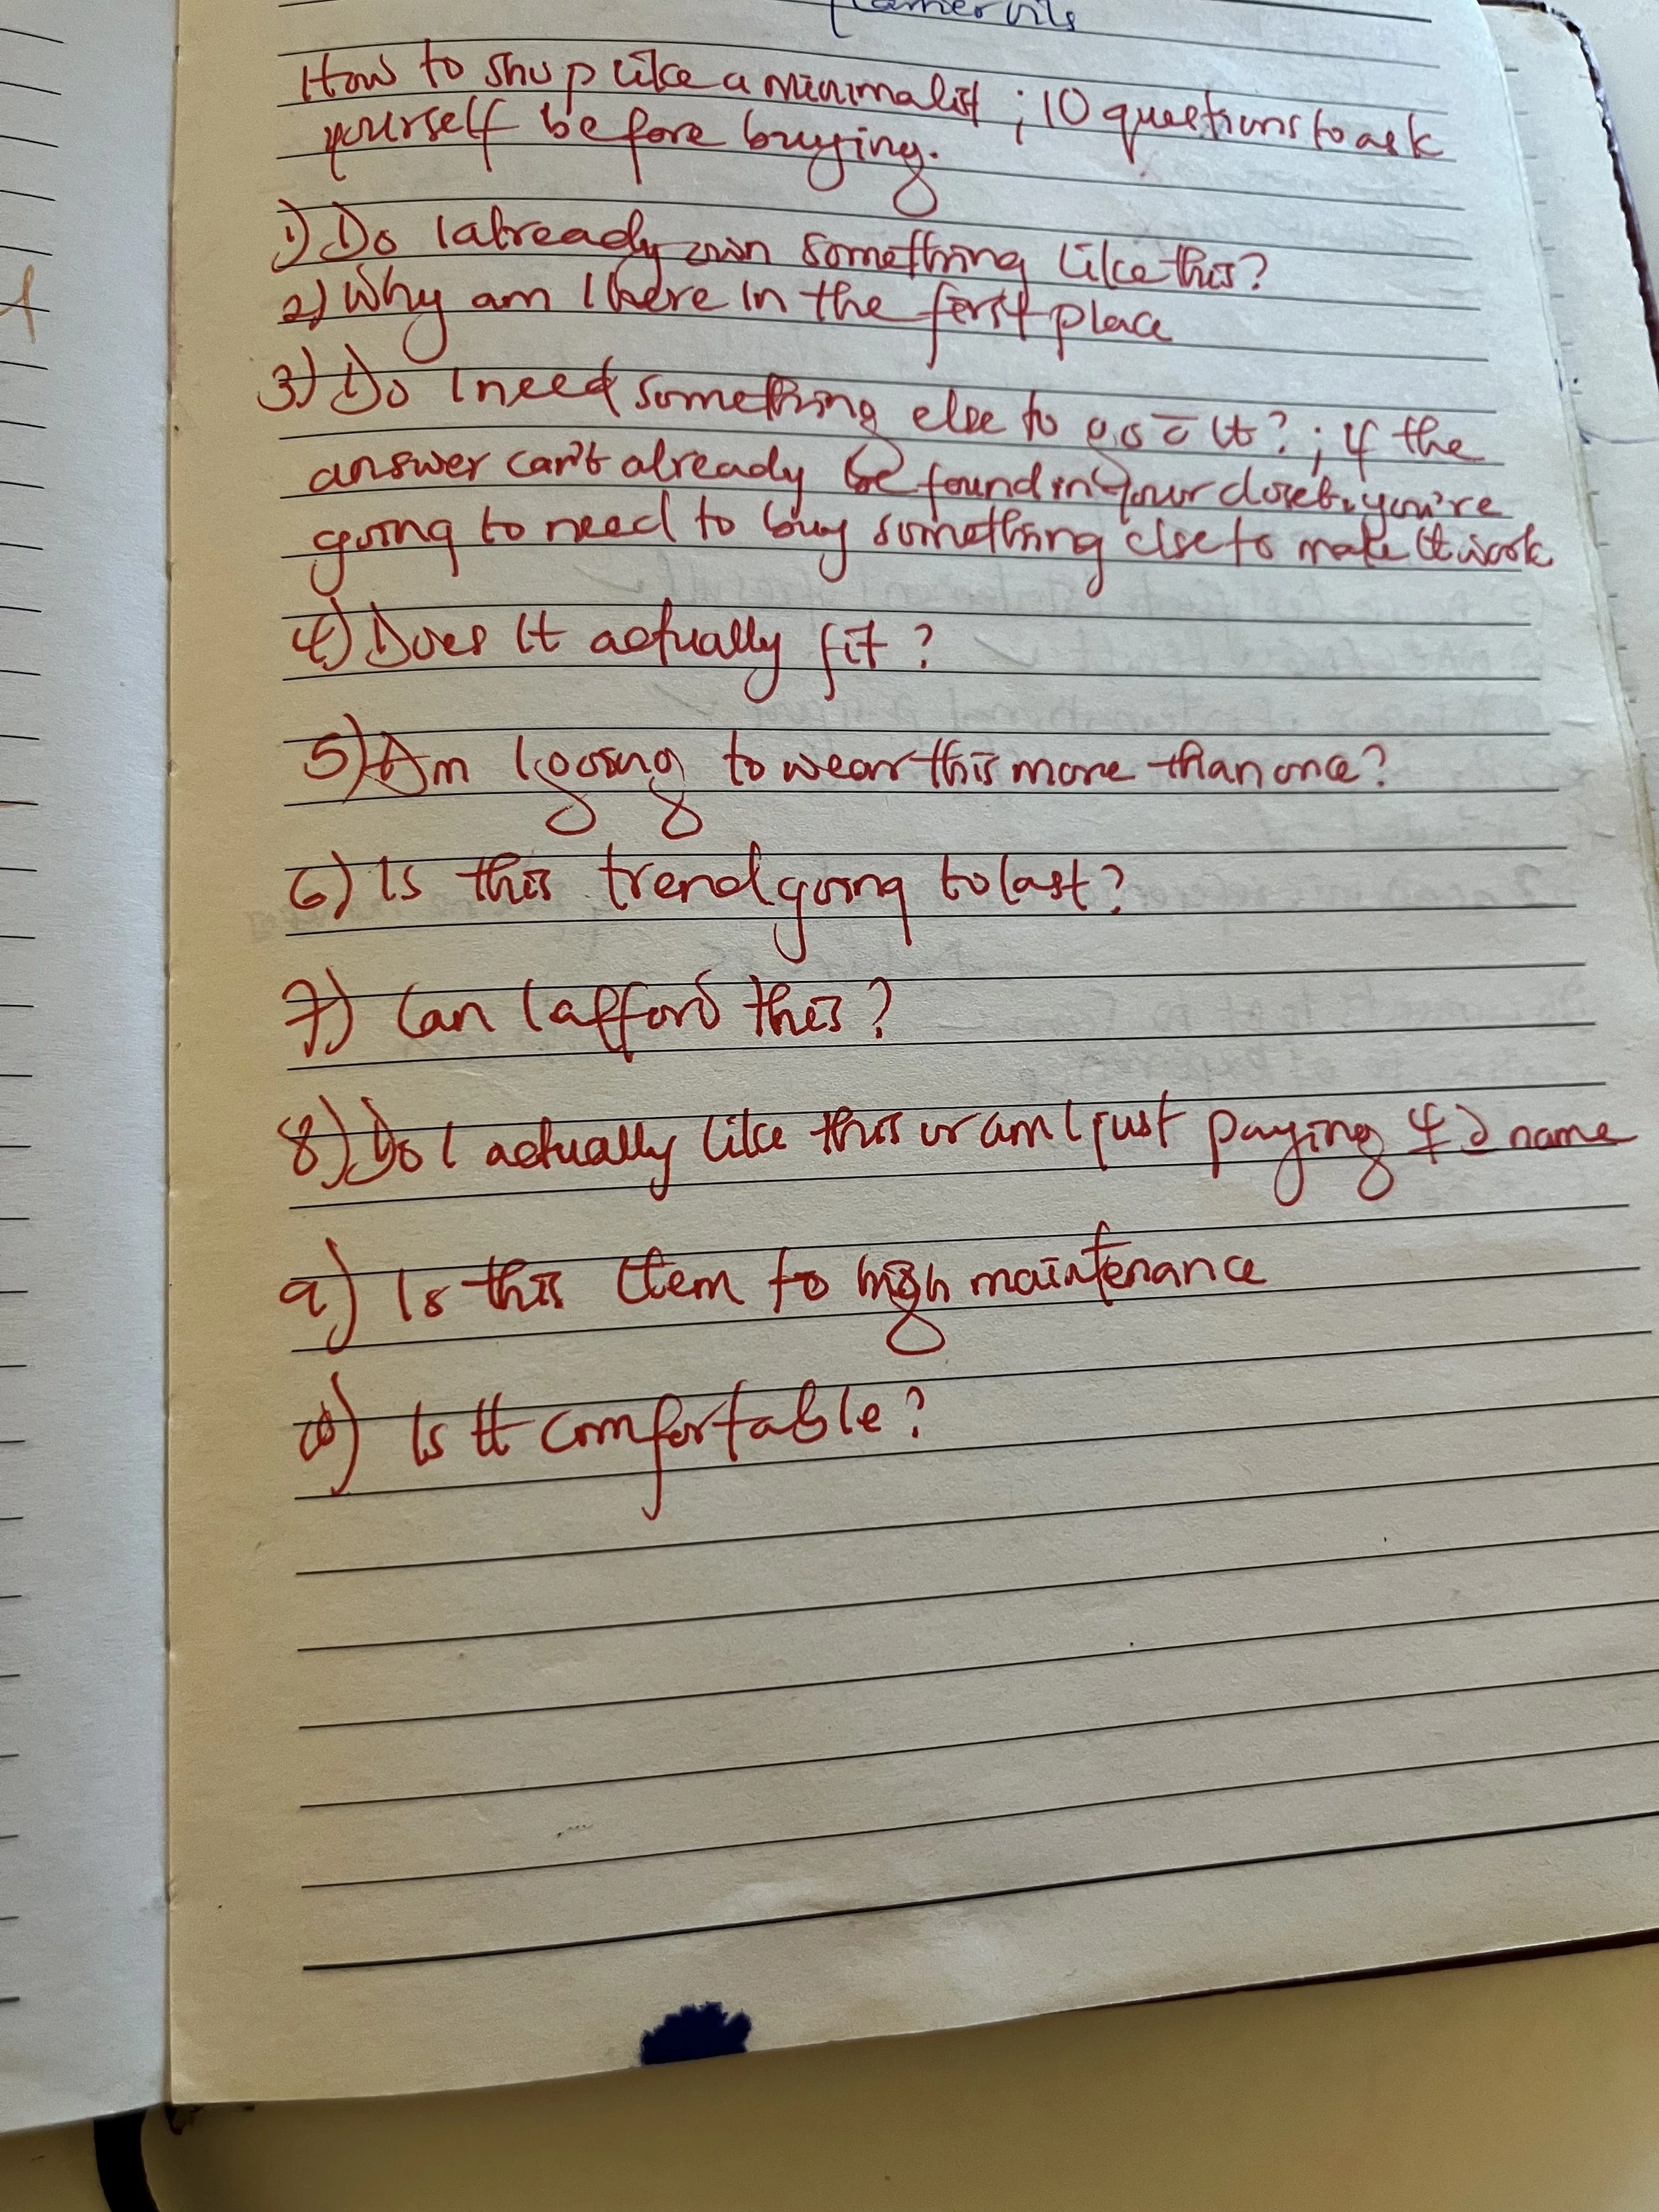 How to shop like a minimalist ; 10 questions to ask
yourself before buying.
1) Do I already own something like this?
2) Why am I here in the first place
3) Do I need something else to go c̄ it? ; if the
answer can't already be found in your closet, you're
going to need to buy something else to make it work
4) Does it actually fit ?
5) Am I going to wear this more than once?
6) Is this trend going to last?
7) Can I afford this ?
8) Do I actually like this or am I just paying 4 d name
9) Is this item to high maintenance
10) Is it comfortable ?